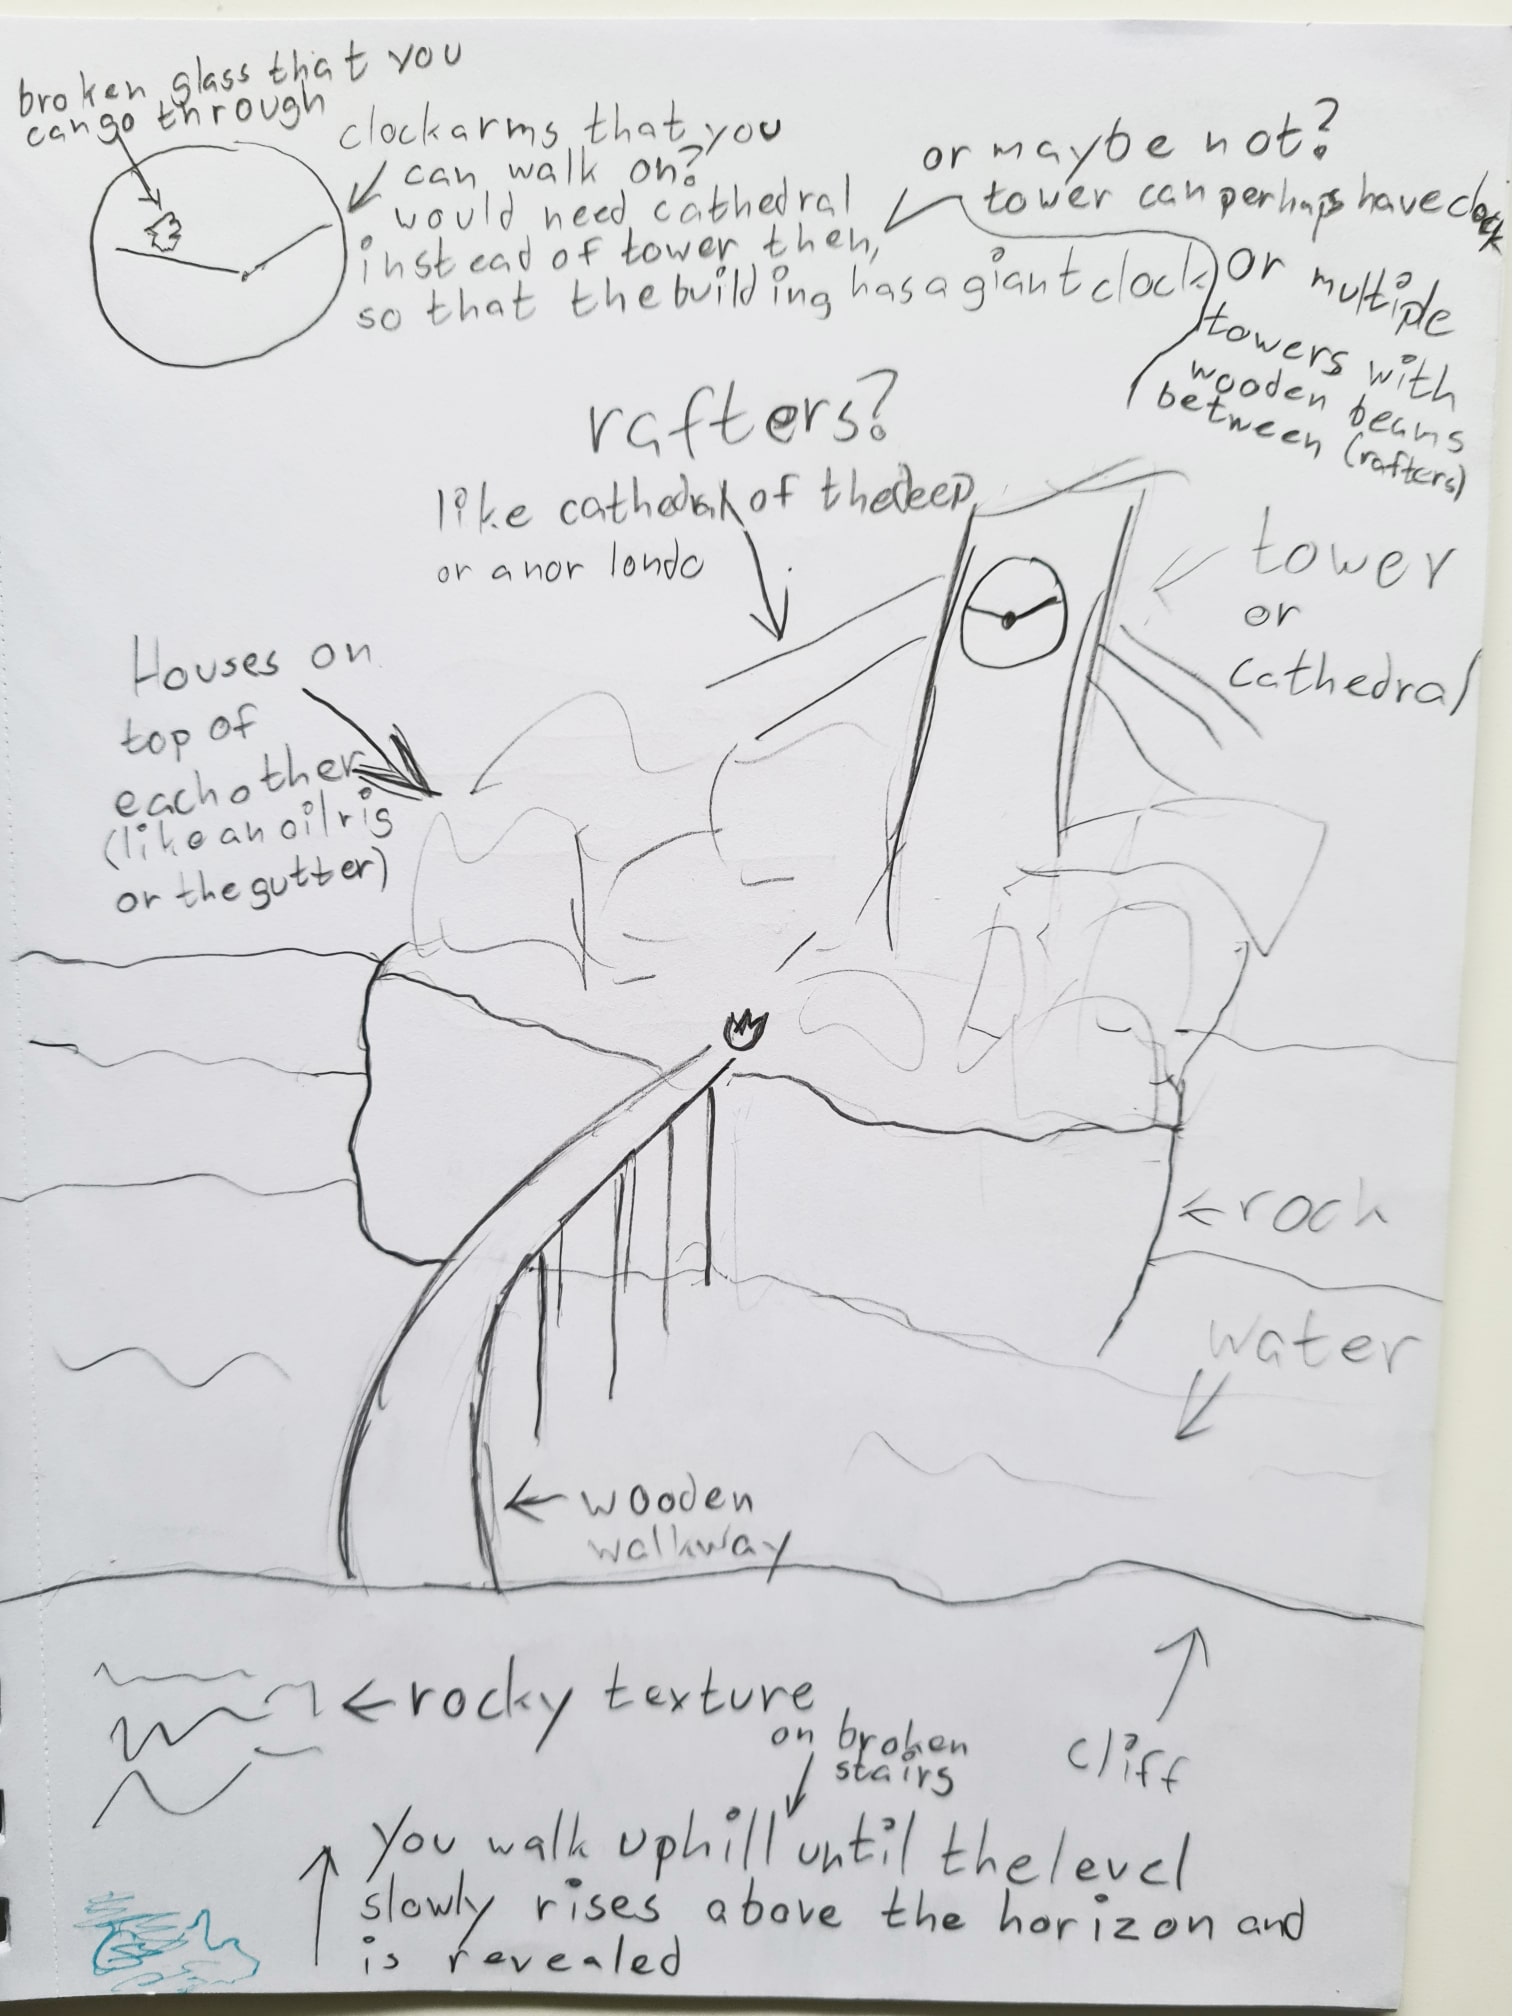 broken glass that you
can go through
clockarms that you
can walk on?
would need cathedral
instead of tower then,
so that the building has a giant clock
or maybe not?
tower can perhaps have clock
or multiple
towers with
wooden beams
between (rafters)
rafters?
like cathedral of the deep
or anor londo
tower
or
cathedral
Houses on
top of
each other
(like an oil rig
or the gutter)
rock
water
wooden
walkway
rocky texture
on broken
stairs
cliff
You walk uphill until the level
slowly rises above the horizon and
is revealed